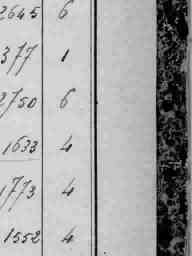 2645 6
377 1
2750 6
1633 4
1773 4
1552 4